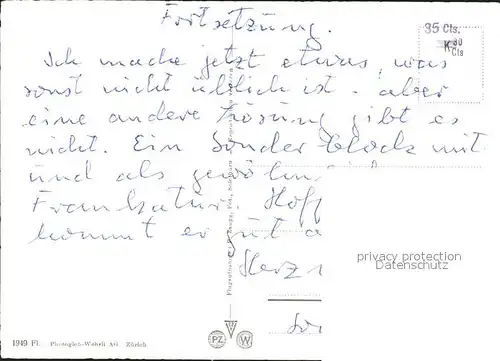 Fortsetzung.
35 Cts.
K 30 Cts
Ich mache jetzt etwas, was
sonst nicht üblich ist. aber
eine andere Lösung gibt es
nicht. Ein Sonder block mit
und als
Frankatur. Hoff
kommt er gut a
privacy protection
Datenschutz
Herz
1949 Fl. Photoglob-Wehrli AG. Zürich
PZ W